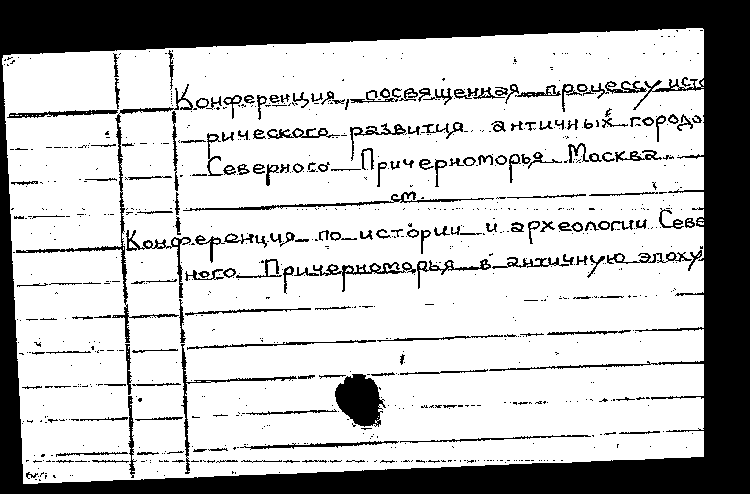 Конференция, посвященная процессу исто
рического развития античных городо
Северного Причерноморья. Москва.
см.
Конференция по истории и археологии Севе
ного Причерноморья в античную эпоху